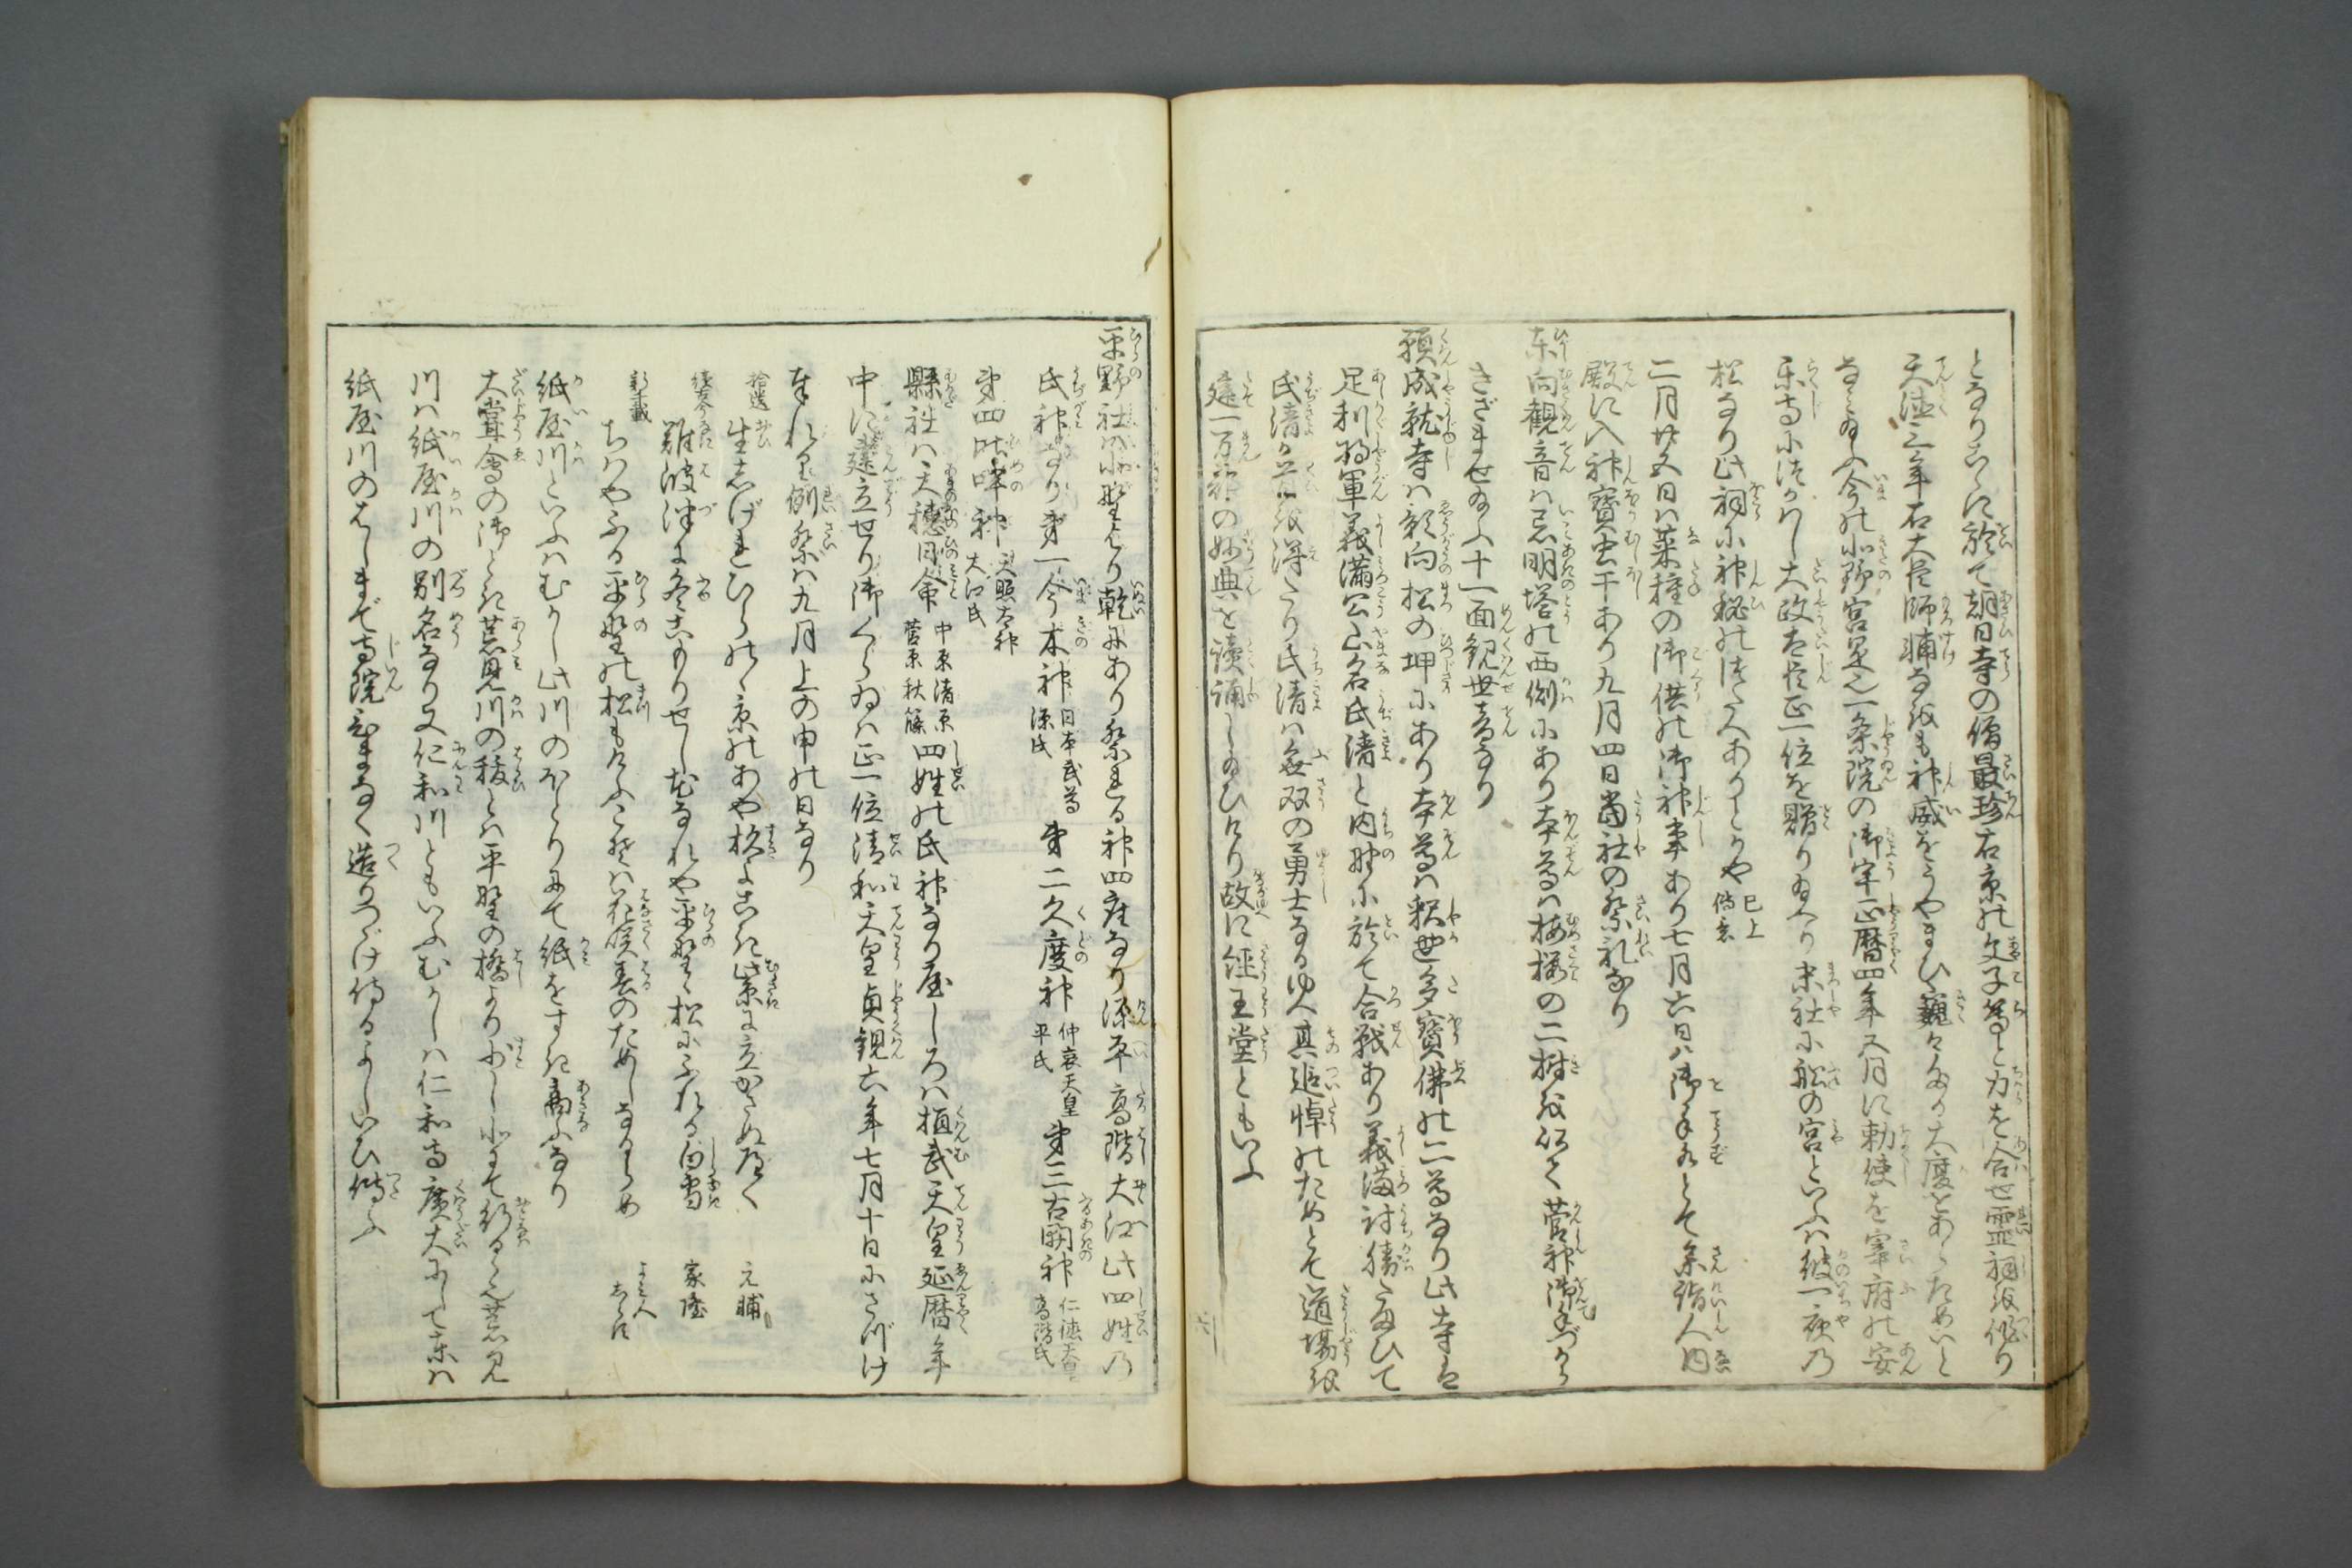 となりこゝに於て朝日寺の僧最珍右京の文子等と力を合せ霊祠を造り
天徳三年右大臣師輔公も神威をうやまひ巍々たる大廈をあらためいと
なみ給ふ今の北野宮是也一条院の御宇正暦四年五月に勅使を宰府の安
楽寺につかはし大政大臣正一位を贈り給へり末社に船の宮といふは彼一夜乃
松なり此祠に神秘のつたへありとかや 已上伝書
二月廿五日は菜種の御供の御神事あり七月六日は御手水とて参詣人内
殿に入神宝虫干あり九月四日当社の祭礼なり
東向観音は忌明塔の西側にあり本尊は梅桜の二樹を以て菅神御手づから
きざませ給ふ十一面観世音なり
願成就寺は影向松の坤にあり本尊は釈迦多宝仏の二尊なり此寺は
足利将軍義満公山名氏清と内野に於て合戦あり義満討勝たまひて
氏清が首を得たり氏清は無双の勇士なるゆへ其追悼のためとて道場を
建一万部の妙典を読誦し給ひけり故に経王堂ともいふ
平野社は北野より乾にあり祭れる神四座なり源平高階大江此四姓乃
氏神なり第一今木神 日本武尊源氏 第二久度神 仲哀天皇平氏 第三古開神 仁徳天皇高階氏
第四比咩神 天照大神大江氏
縣社は天穂日命 中原清原菅原秋篠 四姓の氏神なり屋しろは桓武天皇延暦年
中に建立せり御くらゐは正一位清和天皇貞観六年七月十日にさづけ
奉れり例祭は九月上の申の日なり
拾遺 生しげれひらのゝ原のあや杉よこき紫に立かさぬべく 元輔
続古今 難波津に冬ごもりせし花なれや平野ゝ松にふれる白雪 家隆
新千載 ちはやふる平野の松もけふこそは花咲春のためしなるらめ よみ人しらす
紙屋川といふはむかし此川のほとりにて紙をすき商ふなり
大嘗会の御とき荒見川の祓とは平野の橋より少し北にて行るゝ也荒見
川は紙屋川の別名なり又仁和川ともいふむかしは仁和寺広大にして東は
紙屋川のはしまで寺院ひまなく造りつゞけ侍るよしいひ伝ふ